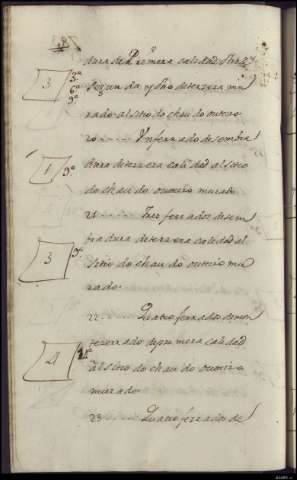 dura de Primera calidad
3
3ª
6ª
9ª
Segun da y otro de tersera mu
rado al sitio do chau do outeiro
20 Un ferrado de sembra
1
9ª
dura de tersera calidad al sitio
do chau do outeiro murado
21 Tres ferrados de sem
bradura de tersera calidad al
3
sitio do chau do outeiro mu
rado.
22 Quatro ferrados de mon
te serrado de primera calidad
4
al sitio do chau do outeiro
murado
23 Quatro ferrados de